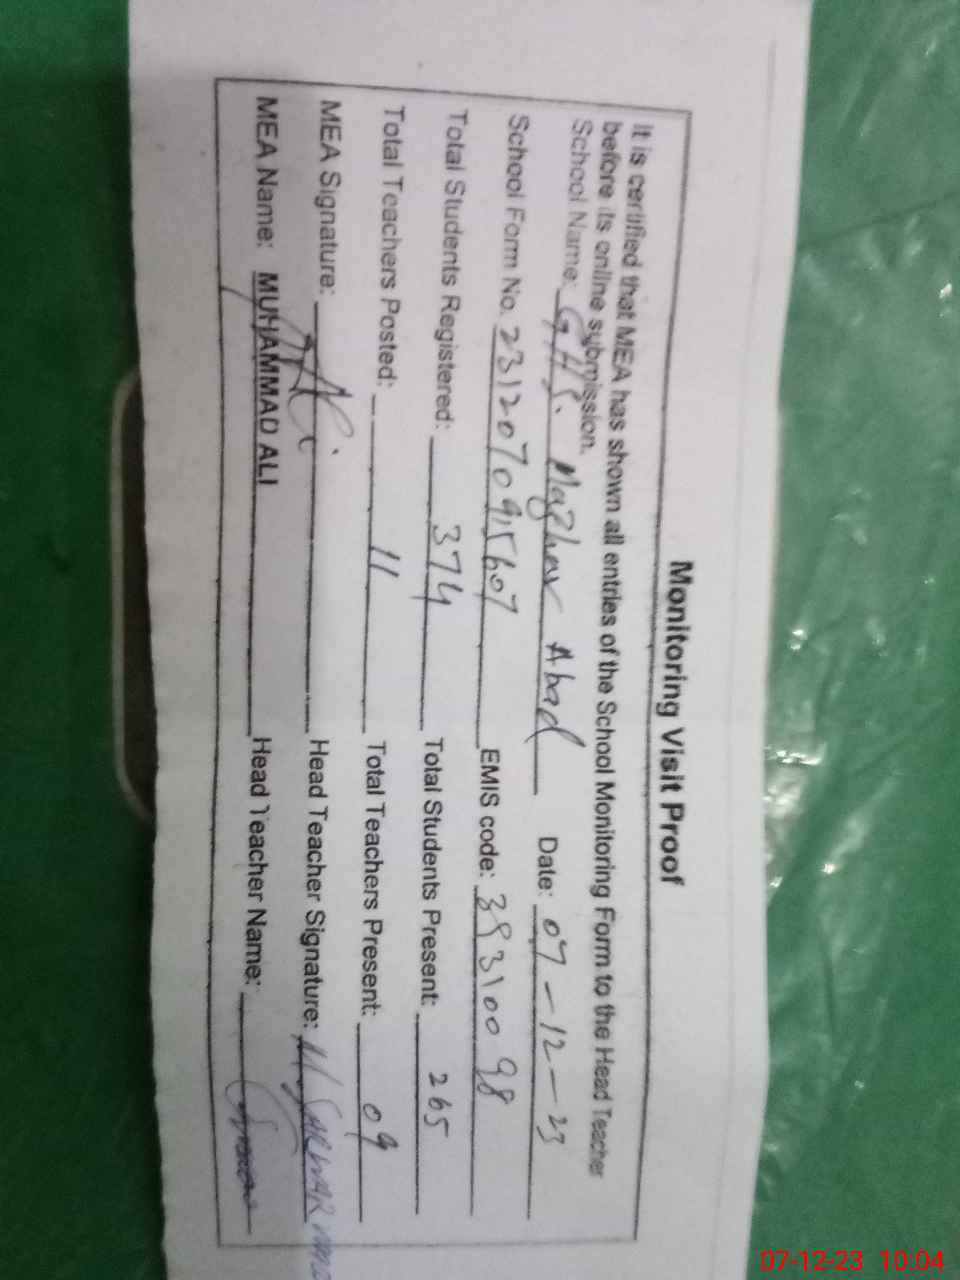 Monitoring Visit Proof
It is certified that MEA has shown all entries of the School Monitoring Form to the Head Teacher
before its online submission.
School Name: G.H.S. Mazhar Abad Date: 07-12-23
School Form No. 231207095607 EMIS code: 39310098
Total Students Registered: 374 Total Students Present: 265
Total Teachers Posted: 11 Total Teachers Present: 09
MEA Signature: Head Teacher Signature: M. SARWAR
MEA Name: MUHAMMAD ALI Head Teacher Name:
07-12-23 10:04